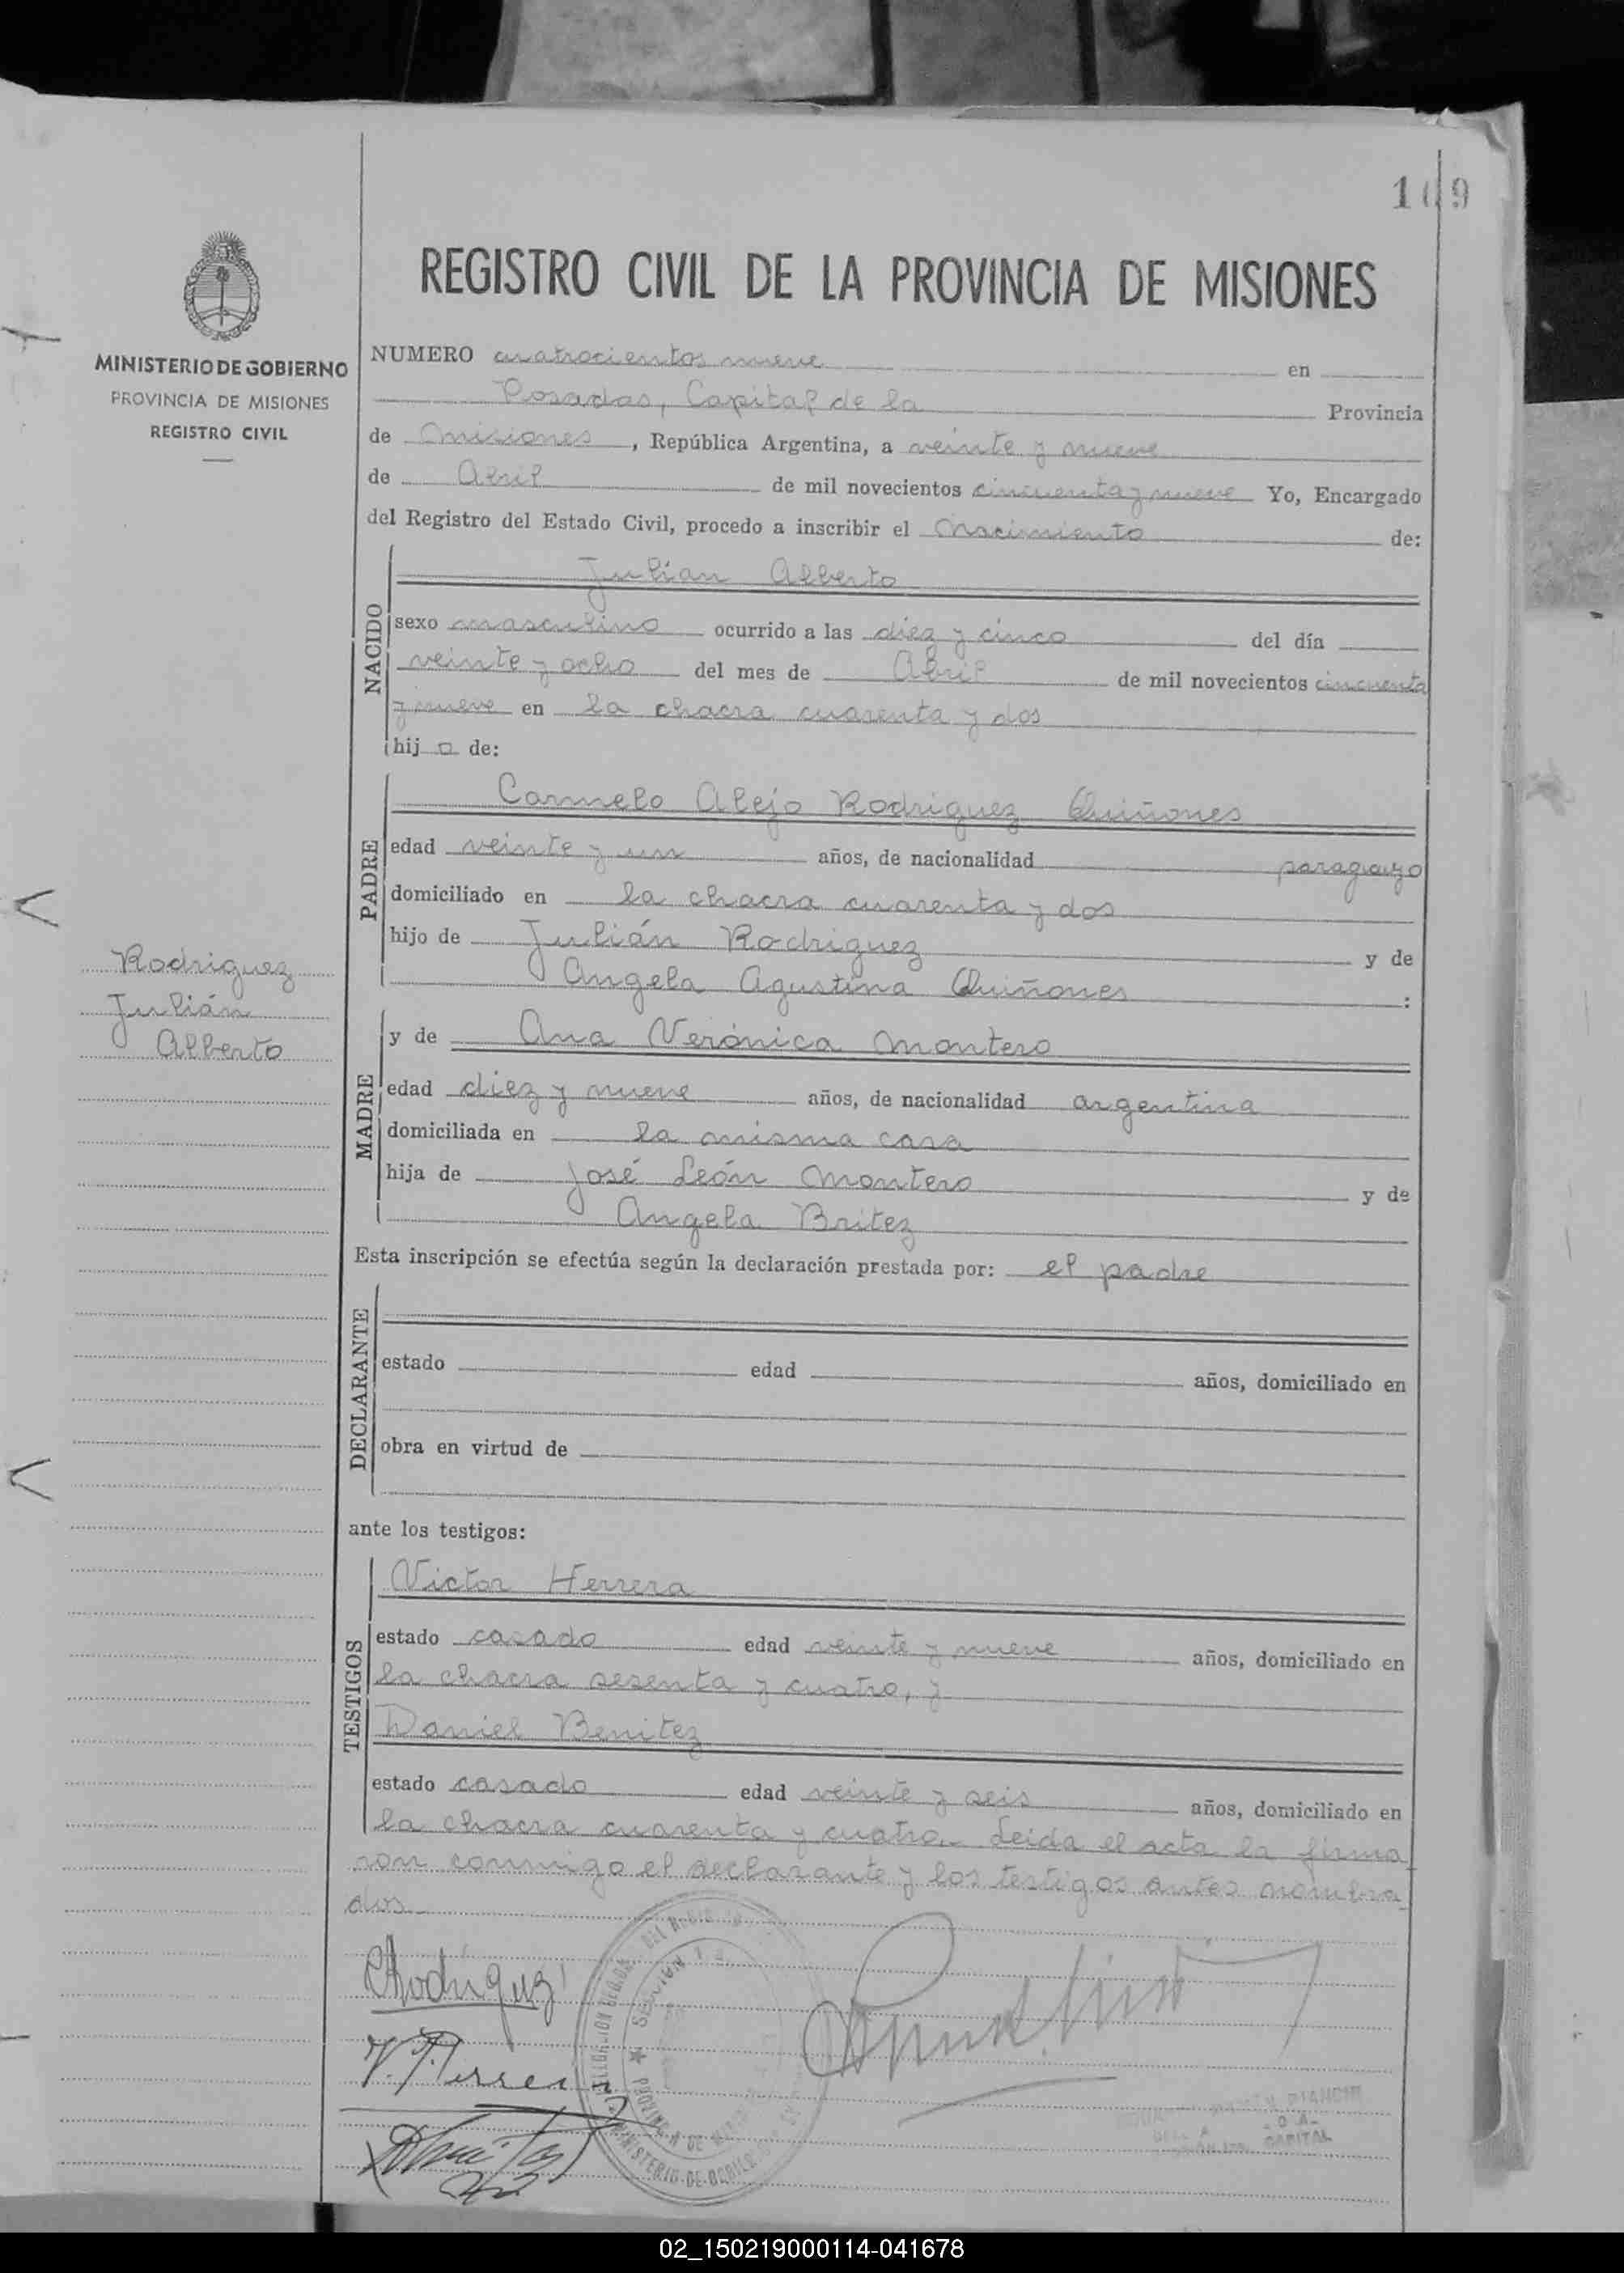 169
REGISTRO CIVIL DE LA PROVINCIA DE MISIONES
MINISTERIO DE GOBIERNO
PROVINCIA DE MISIONES
REGISTRO CIVIL
NUMERO cuatrocientos nueve en
Posadas, Capital de la Provincia
de Misiones, República Argentina, a veinte y nueve
de Abril de mil novecientos cincuenta y nueve Yo, Encargado
del Registro del Estado Civil, procedo a inscribir el Nacimiento de:
NACIDO
Julián Alberto
sexo masculino ocurrido a las diez y cinco del día
veinte y ocho del mes de Abril de mil novecientos cincuenta
y nueve en la chacra cuarenta y dos
hijo de:
PADRE
Carmelo Alejo Rodriguez Quiñones
edad veinte y un años, de nacionalidad paraguayo
domiciliado en la chacra cuarenta y dos
hijo de Julián Rodriguez y de
Angela Agustina Quiñones :
Rodriguez
Julián
Alberto
MADRE
y de Ana Verónica Montero
edad diez y nueve años, de nacionalidad argentina
domiciliada en la misma casa
hija de José León Montero y de
Angela Britez
Esta inscripción se efectúa según la declaración prestada por: el padre
DECLARANTE
estado edad años, domiciliado en
obra en virtud de
ante los testigos:
TESTIGOS
Victor Herrera
estado casado edad veinte y nueve años, domiciliado en
la chacra sesenta y cuatro, y
Daniel Benitez
estado casado edad veinte y seis años, domiciliado en
la chacra cuarenta y cuatro.- Leída el acta la firma
ron conmigo el declarante y los testigos antes nombra
dos.-
CARodríguez
V. Herrera
CAPITAL
02_150219000114-041678